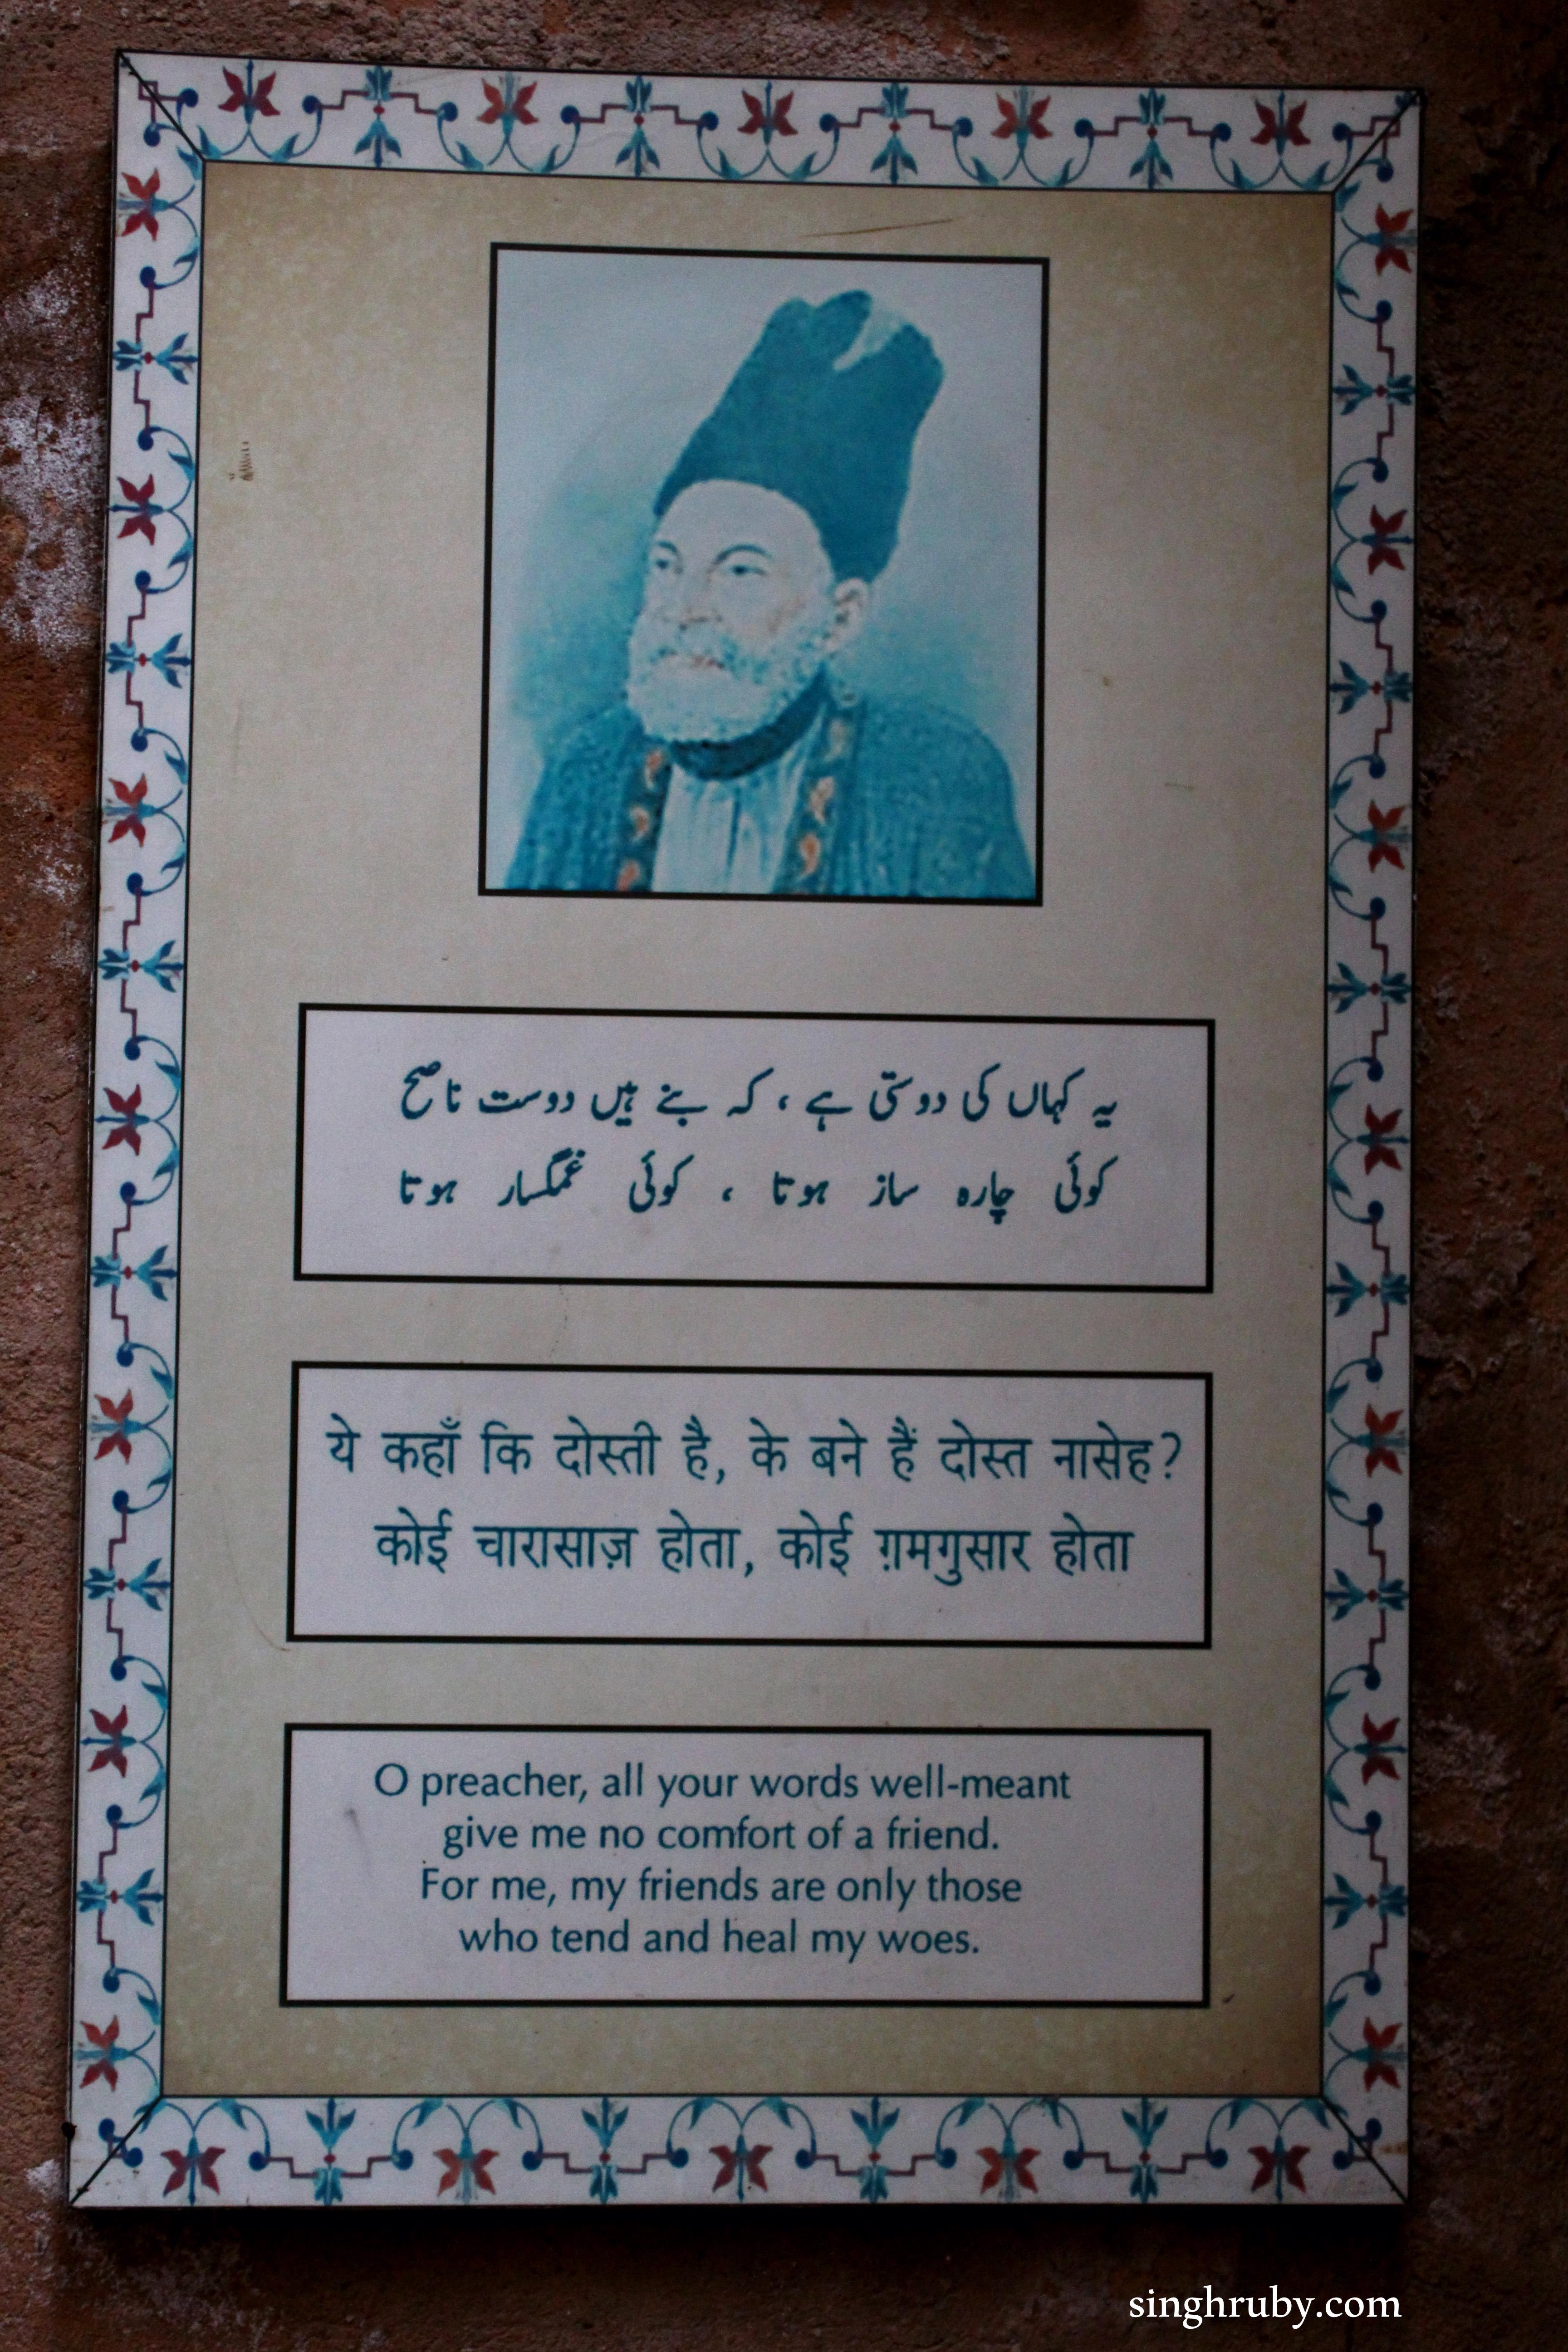 یہ کہاں کی دوستی ہے ، کہ بنے ہیں دوست ناصح
کوئی چارہ ساز ہوتا ، کوئی غمگسار ہوتا
ये कहाँ कि दोस्ती है, के बने हैं दोस्त नासेह?
कोई चारासाज़ होता, कोई ग़मगुसार होता
O preacher, all your words well-meant
give me no comfort of a friend.
For me, my friends are only those
who tend and heal my woes.
singhruby.com